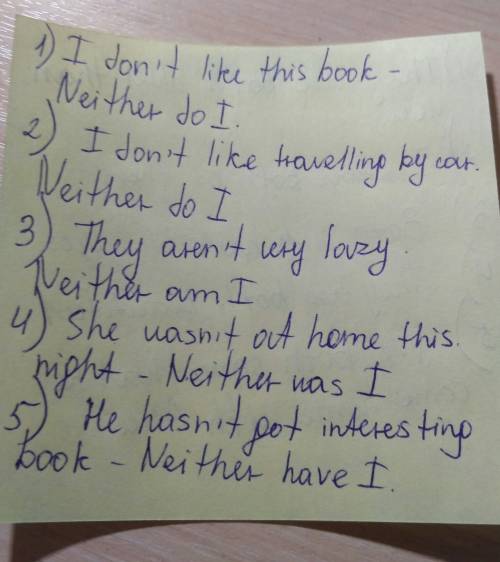 1) I don't like this book -
Neither do I.
2) I don't like travelling by car.
Neither do I
3) They aren't very lazy.
Neither am I
4) She wasn't at home this.
night - Neither was I
5) He hasn't got interesting
book - Neither have I.